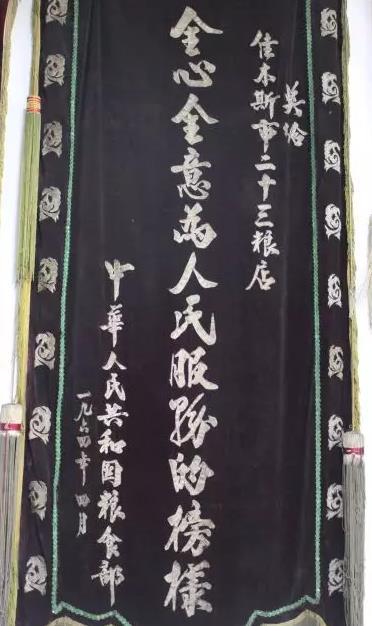 奖给
佳木斯市二十三粮店
全心全意為人民服务的榜樣
中華人民共和国粮食部
一九六四年四月